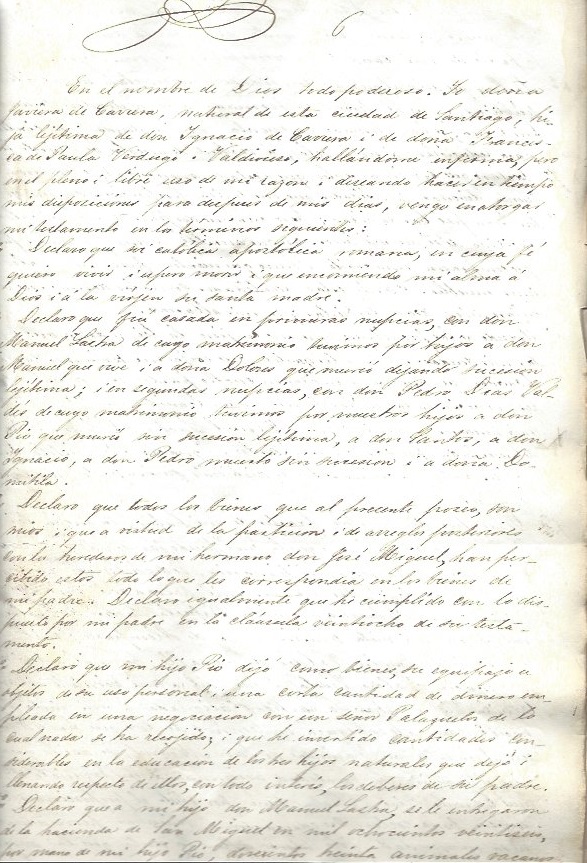 6
En el nombre de Dios todo poderoso. Yo doña
Javiera de Carrera, natural de esta ciudad de Santiago, hi-
ja lejítima de don Ignacio de Carrera i de doña Francis-
ca de Paula Verdugo i Valdivieso, hallándome enferma, pero
en el pleno i libre uso de mi razon i deseando hacer en tiempo
mis disposiciones para despues de mis dias, vengo en otorgar
mi testamento en los términos siguientes:
Declaro que soi católica apostólica romana, en cuya fé
quiero vivir i espero morir i que encomiendo mi alma á
Dios i á la vírjen su santa madre.
Declaro que fuí casada en primeras nupcias, con don
Manuel Lastra de cuyo matrimonio tuvimos por hijos a don
Manuel que vive i a doña Dolores que murió dejando sucesion
lejítima; i en segundas nupcias, con don Pedro Dias Val-
des de cuyo matrimonio tuvimos por nuestros hijos a don
Pio que murió sin sucesion lejítima, a don Santos, a don
Ignacio, a don Pedro muerto sin sucesion i a doña Do-
mitila.
Declaro que todos los bienes que al presente poseo, son
mios i que a virtud de la particion i de arreglos posteriores
con los herederos de mi hermano don José Miguel, han per-
cibido estos todo lo que les correspondia en los bienes de
mi padre. Declaro igualmente que he cumplido con lo dis-
puesto por mi padre en la cláusula veintiocho de su testa-
mento.
Declaro que mi hijo Pio dejó como bienes, su equipaje u
objetos de su uso personal i una corta cantidad de dinero em-
pleada en una negociacion con un señor Palazuelos de lo
cual nada se ha recojido; i que he invertido cantidades con-
siderables en la educacion de los tres hijos naturales que dejó i
llenando respecto de ellos, con todo interes, los deberes de su padre.
Declaro que a mi hijo don Manuel Lastra, se le entregaron
de la hacienda de San Miguel en mil ochocientos veintiseis,
por mano de mi hijo Pio, doscientos treinta animales vacunos